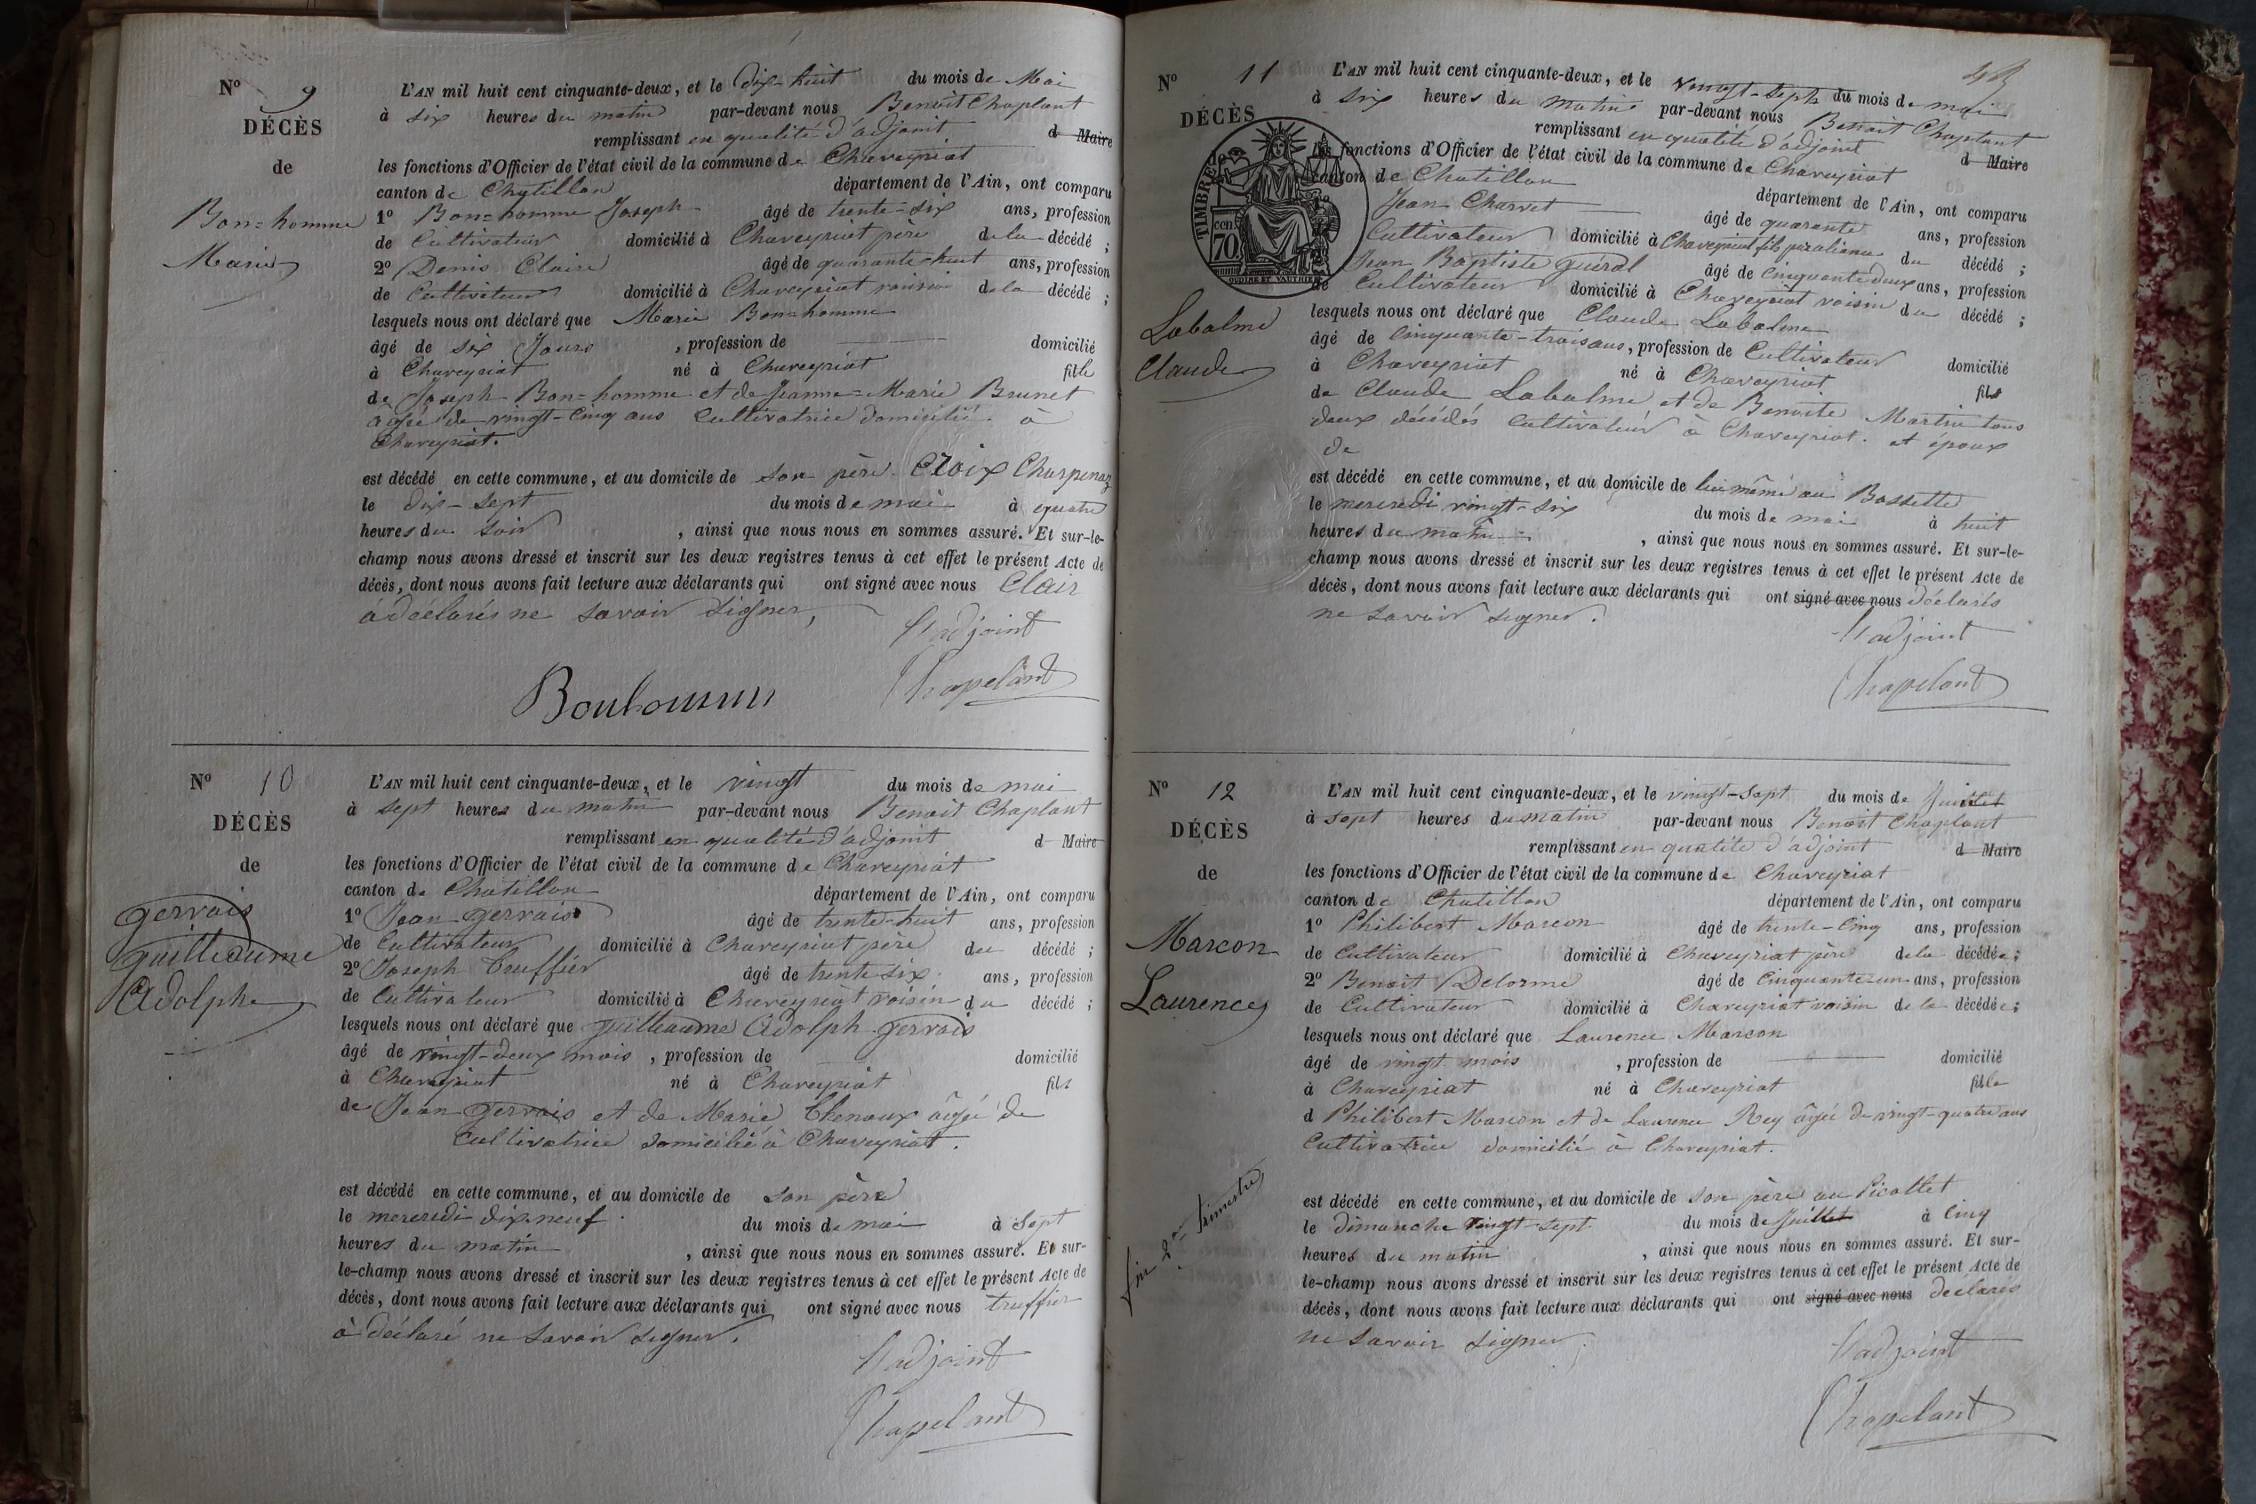 Nº 9
DÉCÈS
de
Bon=homme
Marie
L'AN mil huit cent cinquante-deux, et le dix-huit du mois de Mai
à six heures du matin par-devant nous Benoit Chaplant
remplissant en qualité d'adjoint d Maire
les fonctions d'Officier de l'état civil de la commune de Chaveyriat
canton de Chatillon département de l'Ain, ont comparu
1º Bon=homme Joseph âgé de trente-six ans, profession
de Cultivateur domicilié à Chaveyriat père de la décédé ;
2º Denis Claire âgé de quarante-huit ans, profession
de Cultivateur domicilié à Chaveyriat voisin de la décédé ;
lesquels nous ont déclaré que Marie Bon=homme
âgé de six Jours , profession de domicilié
à Chaveyriat né à Chaveyriat fille
de Joseph Bon=homme et de Jeanne=Marie Brunet
âgée de vingt-cinq ans Cultivatrice domicilié à
Chaveyriat.
est décédé en cette commune, et au domicile de son père Croix Charpenaz
le dix-sept du mois de mai à quatre
heures du soir , ainsi que nous nous en sommes assuré. Et sur-le-
champ nous avons dressé et inscrit sur les deux registres tenus à cet effet le présent Acte de
décès, dont nous avons fait lecture aux déclarants qui ont signé avec nous Clair
à déclarés ne savoir signer,
l'adjoint
Chapelant
Bonhomme
Nº 10
DÉCÈS
de
gervais
guilleaume
Adolphe
L'AN mil huit cent cinquante-deux, et le vingt du mois de mai
à sept heures du matin par-devant nous Benoit Chaplant
remplissant en qualité d'adjoint d Maire
les fonctions d'Officier de l'état civil de la commune de Chaveyriat
canton de Chatillon département de l'Ain, ont comparu
1º Jean gervais âgé de trente-huit ans, profession
de Cultivateur domicilié à Chaveyriat père du décédé ;
2º Joseph truffier âgé de trente-six ans, profession
de Cultivateur domicilié à Chaveyriat voisin du décédé ;
lesquels nous ont déclaré que guilleaume Adolph gervais
âgé de vingt-deux mois , profession de domicilié
à Chaveyriat né à Chaveyriat fils
de Jean gervais et de Marie Chenaux âgé de
Cultivatrice domicilié à Chaveyriat.
est décédé en cette commune, et au domicile de son père
le mercredi dix-neuf du mois de mai à sept
heures du matin , ainsi que nous nous en sommes assuré. Et sur-
le-champ nous avons dressé et inscrit sur les deux registres tenus à cet effet le présent Acte de
décès, dont nous avons fait lecture aux déclarants qui ont signé avec nous truffier
à déclaré ne savoir signer.
l'adjoint
Chapelant
Nº 11
DÉCÈS
TIMBRE
70 cen
Labalme
Claude
L'AN mil huit cent cinquante-deux, et le vingt-sept du mois de mai
à six heures du matin par-devant nous Benoit Chaplant
remplissant en qualité d'adjoint d Maire
les fonctions d'Officier de l'état civil de la commune de Chaveyriat
canton de Chatillon département de l'Ain, ont comparu
Jean Charvet âgé de quarante ans, profession
Cultivateur domicilié à Chaveyriat fils par aliance du décédé ;
Jean Baptiste guéral âgé de cinquante deux ans, profession
de Cultivateur domicilié à Chaveyriat voisin du décédé ;
lesquels nous ont déclaré que Claude Labalme
âgé de cinquante-trois ans, profession de Cultivateur domicilié
à Chaveyriat né à Chaveyriat fils
de Claude Labalme et de Benoite Martin tous
deux décédés Cultivateur à Chaveyriat. et époux
de
est décédé en cette commune, et au domicile de lui même au Bassette
le mercredi vingt-six du mois de mai à huit
heures du matin , ainsi que nous nous en sommes assuré. Et sur-le-
champ nous avons dressé et inscrit sur les deux registres tenus à cet effet le présent Acte de
décès, dont nous avons fait lecture aux déclarants qui ont signé avec nous déclarés
ne savoir signer.
l'adjoint
Chapelant
Nº 12
DÉCÈS
de
Marcon
Laurence
fin 2e trimestre
L'AN mil huit cent cinquante-deux, et le vingt-sept du mois de Juillet
à sept heures du matin par-devant nous Benoit Chaplant
remplissant en qualité d'adjoint d Maire
les fonctions d'Officier de l'état civil de la commune de Chaveyriat
canton de Chatillon département de l'Ain, ont comparu
1º Philibert Marcon âgé de trente-cinq ans, profession
de Cultivateur domicilié à Chaveyriat père de la décédée ;
2º Benoit Delorme âgé de cinquante-un ans, profession
de Cultivateur domicilié à Chaveyriat voisin de la décédée ;
lesquels nous ont déclaré que Laurence Marcon
âgé de vingt mois , profession de domicilié
à Chaveyriat né à Chaveyriat fille
d Philibert Marcon et de Laurence Rey âgée de vingt-quatre ans
Cultivatrice domicilié à Chaveyriat.
est décédé en cette commune, et au domicile de son père au Picollet
le dimanche vingt-sept du mois de Juillet à cinq
heures du matin , ainsi que nous nous en sommes assuré. Et sur-
le-champ nous avons dressé et inscrit sur les deux registres tenus à cet effet le présent Acte de
décès, dont nous avons fait lecture aux déclarants qui ont signé avec nous déclarés
ne savoir signer.
l'adjoint
Chapelant